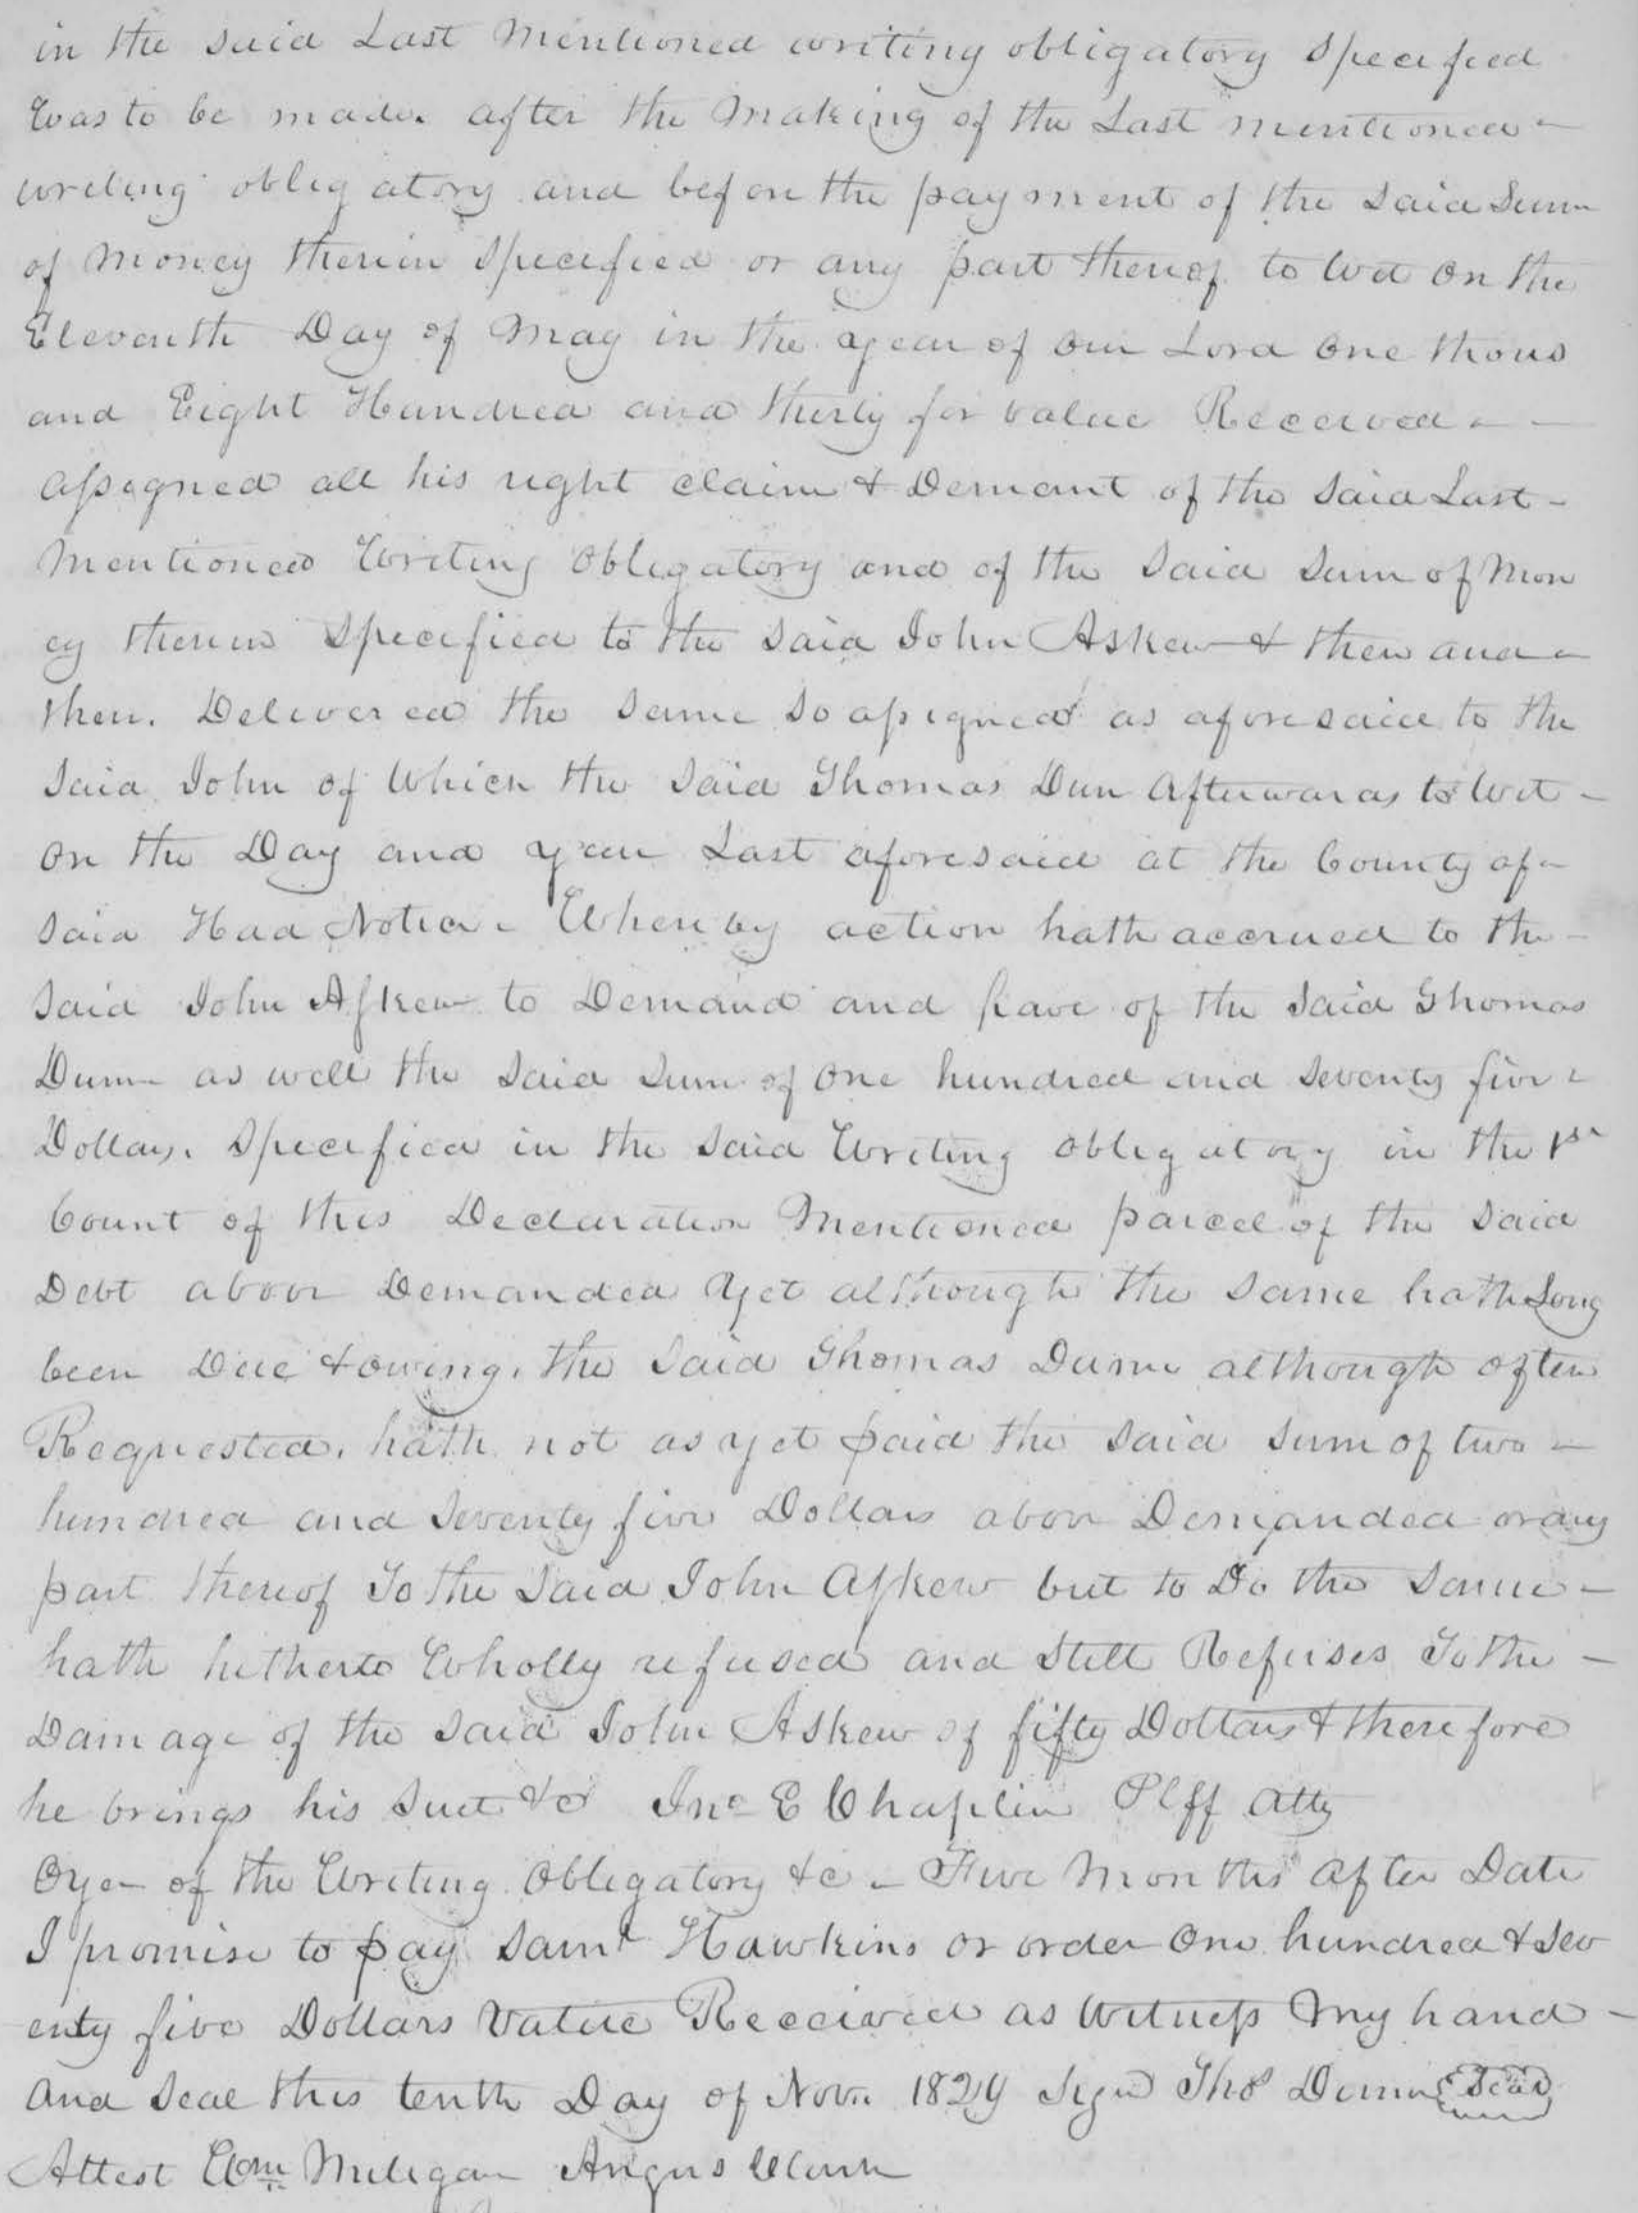 in the said Last Mentioned writing obligatory Specified
Was to be made. after the Making of the Last mentioned -
writing obligatory and before the payment of the said Sum
of Money therein Specified or any part thereof to Wit on the
Eleventh Day of May in the year of our Lord One thous
and Eight Hundred and thirty for value Received - -
assigned all his right claim & Demant of the said Last -
Mentioned Writing Obligatory and of the said sum of Mon
ey therein Specified to the said John Askew & then and -
then. Delivered the same so assigned as aforesaid to the
said John of Which the said Thomas Dun Afterwards to Wit -
on the Day and year Last aforesaid at the County af -
said Had Notice. Whereby action hath accrued to the -
said John Askew to Demand and have of the said Thomas
Dunn as well the said sum of One hundred and seventy five -
Dollars. Specified in the said Writing obligatory in the 1st
Count of this Declaration Mentioned parcel of the said
Debt above Demanded Yet although the same hath Long
been Due & owing. the said Thomas Dunn although often
Requested. hath not as yet paid the said sum of two -
hundred and Seventy five Dollars above Demanded or any
part thereof To the said John Askew but to Do the same -
hath hitherto Wholly refused and still Refuses To the -
Damage of the said John Askew of fifty Dollars & therefore
he brings his suit &c Jno E Chaplin Plff Atty
Oyer of the Writing Obligatory &c - Five Months After Date
I promise to pay Saml Hawkins or order One hundred & Sev
enty five Dollars Value Received as Witness My hand -
And Seal this tenth Day of Novr. 1829 Sign Thos Dunn Seal
Attest Wm Miligan Angus Clark